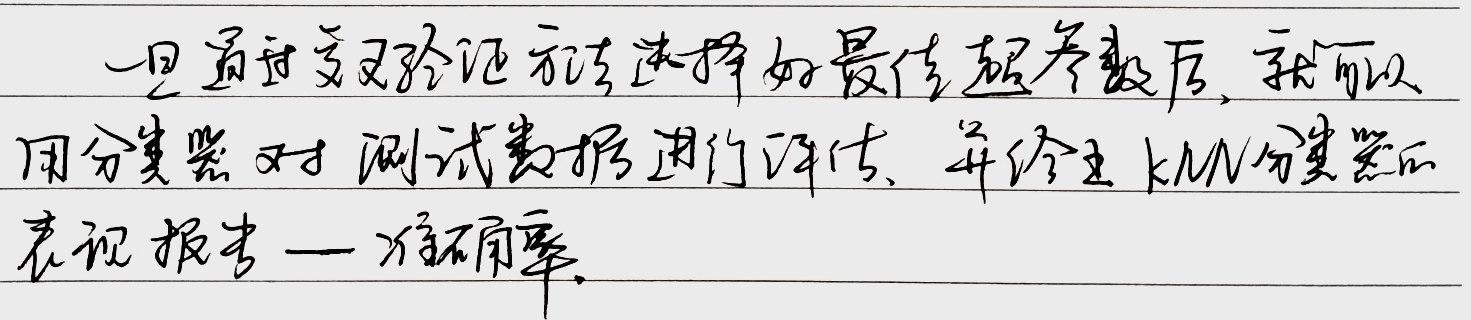 一旦通过交叉验证方法选择好最佳超参数后,就可以
用分类器对测试数据进行评估、并给出KNN分类器的
表现报告—准确率.